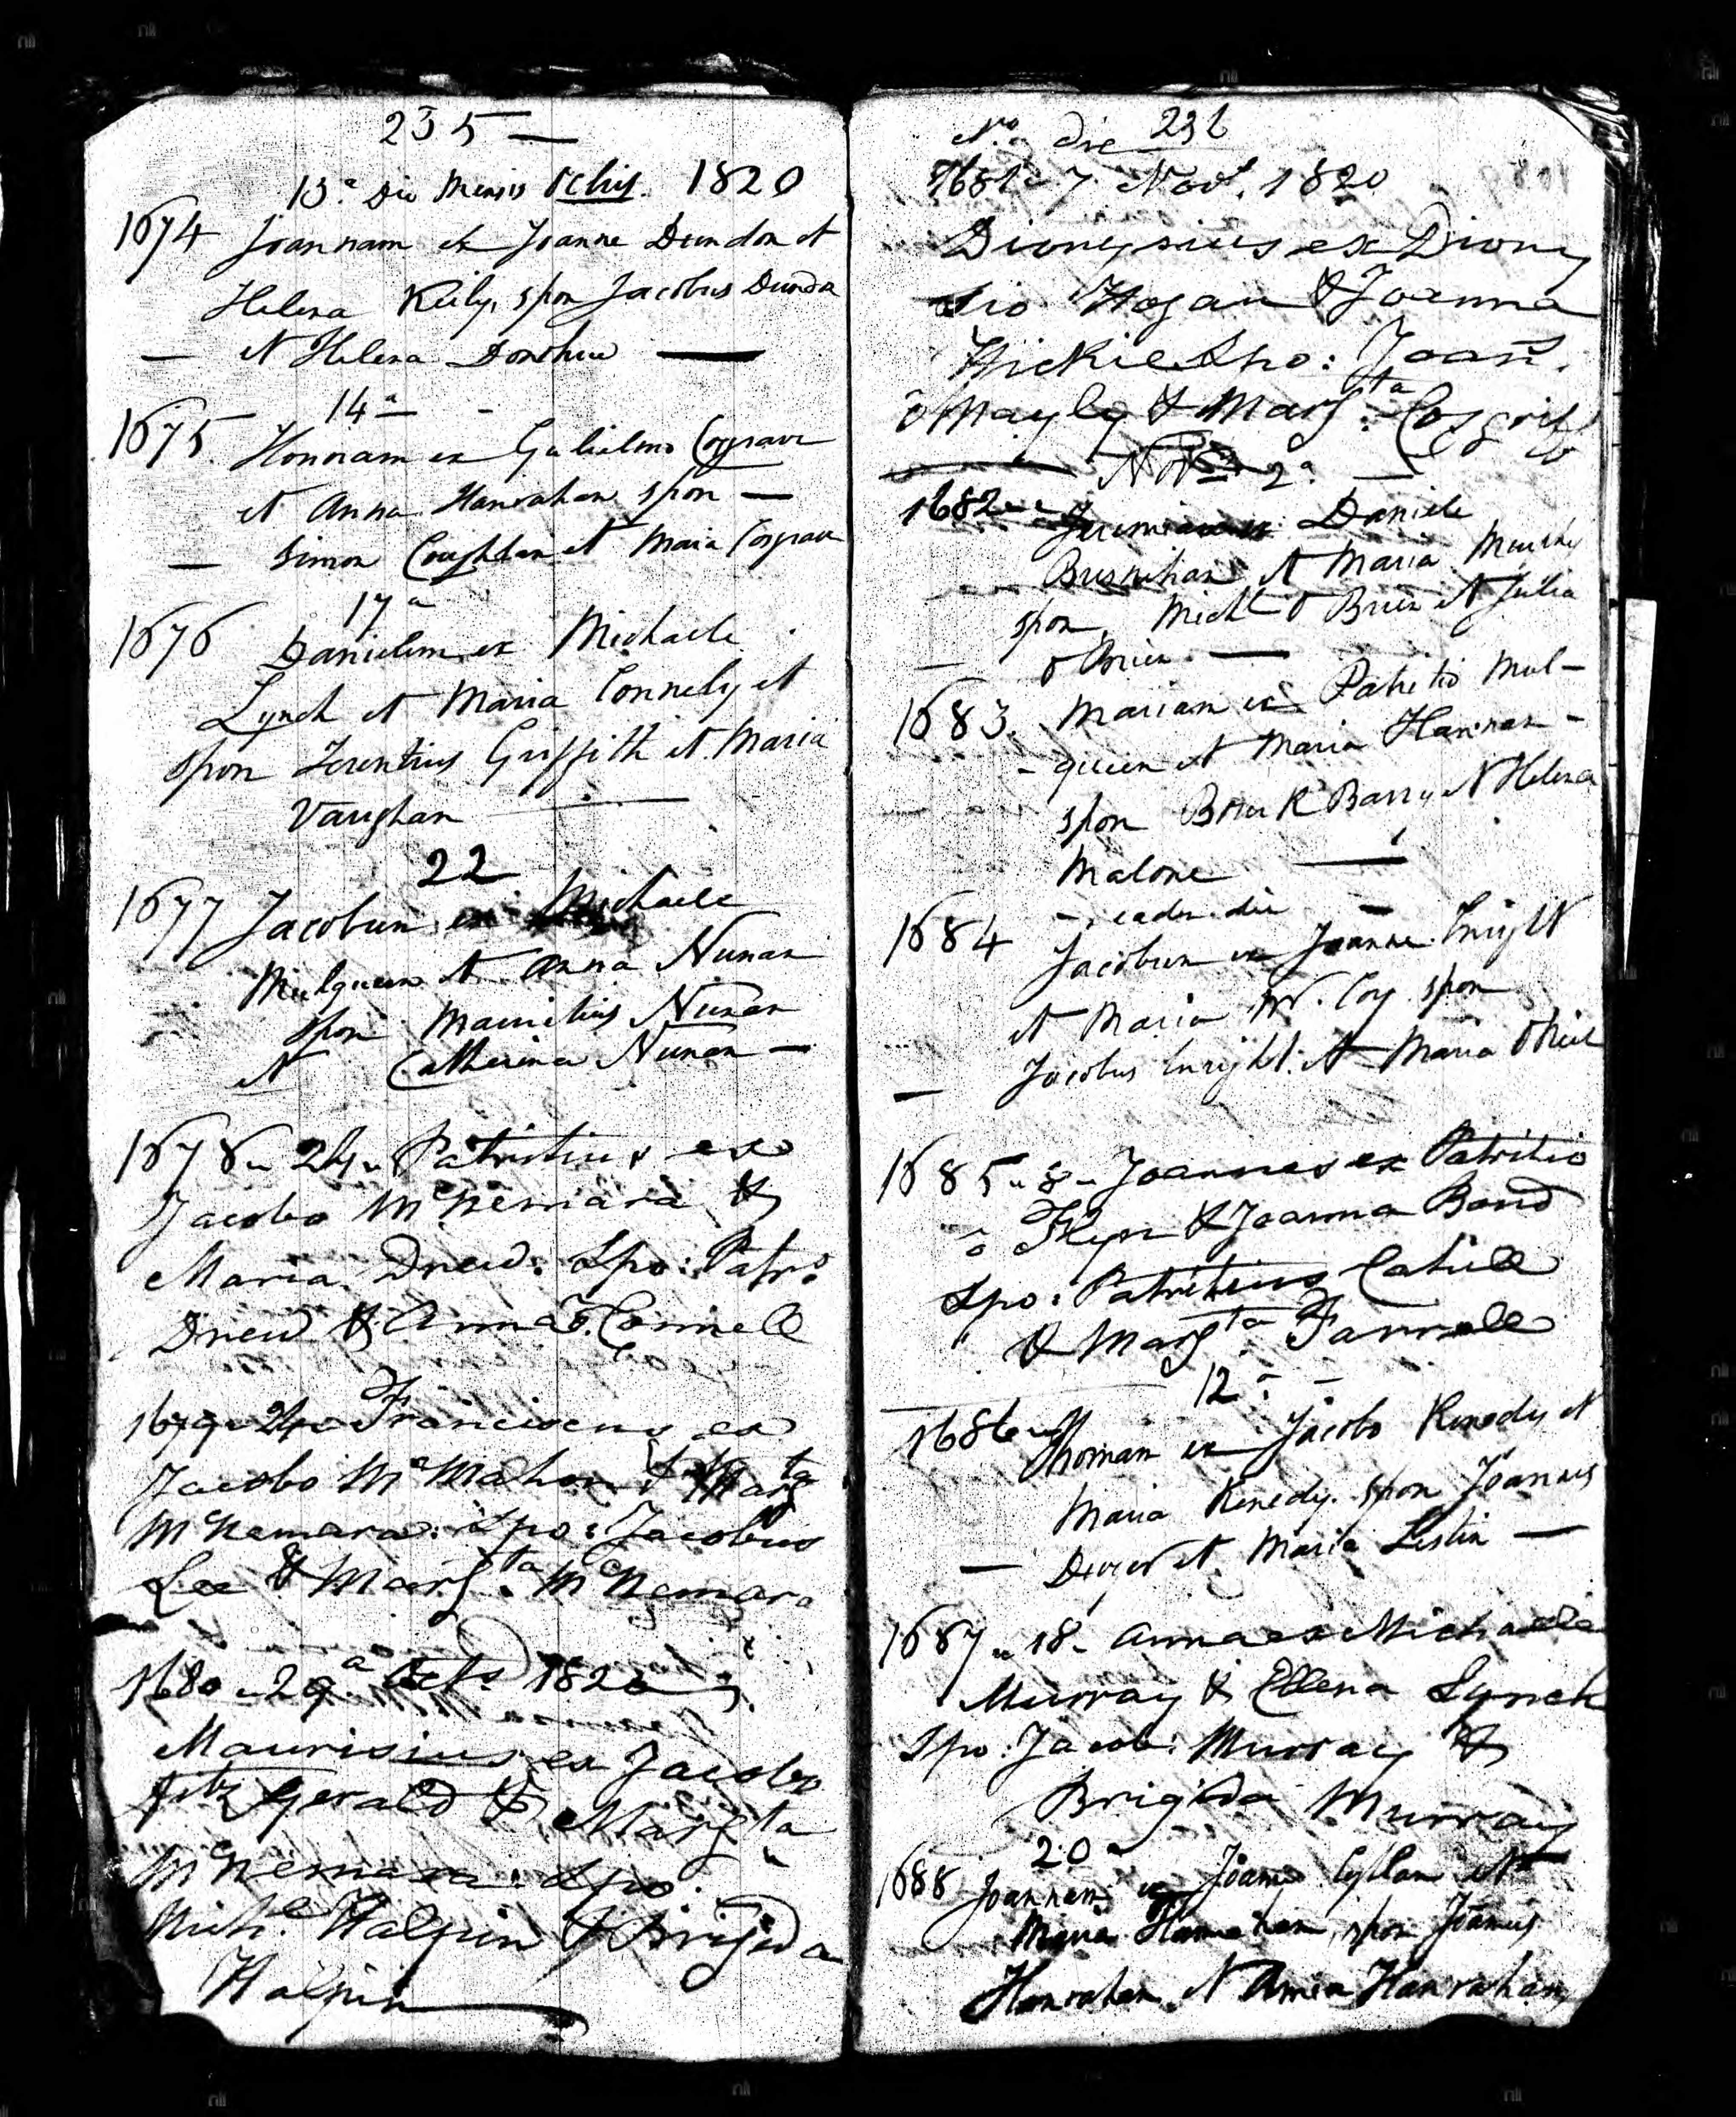 235 —
13.ª Die Mensis 8chris 1820
1674 Joannam ex Joanne Dundon et
Helena Keily, spon Jacobus Dunda
— et Helena Donohue —
14ª —
1675 Honnam ex Gulielmo Cosgrave
et Anna Hanrahan spon —
— Simon Coughlan et Maria Cosgrave
17ª
1676 Danielem ex Michaele
Lynch et Maria Connely et
spon Terentius Griffith et Maria
Vaughan —
22
1677 Jacobum ex Michaele
Mulqueen et Anna Nunan
spon Mauritius Nunan
et Catherina Nunan —
1678 " 24 " Patritius ex
Jacobo McNemara &
Maria Drew. Spo: Patr.
Drew & Anna Connell
1679 " 24 " Franciscus ex
Jacobo McMahon & Margta
McNemara. Spo: Jacobus
Lee & Margta. McNemara
1680 " 29ª Octr 1820
Maurisius ex Jacobo
fitz Gerald & Margta
McNemara. Spo:
Michl. Halpin & Brigida
Halpin
No. Die 236
1681 " 7 Novr. 1820
Dionysius ex Diony
sio Hogan & Joanna
Hickie Spo: Joan.
& Margta. Cosgriff
— 2ª —
1682 " Jeremiam ex Daniele
Brisnihan et Maria Murphy
spon Michl O Brien et Julia
— O Brien —
1683. Mariam ex Patritio Mul-
- queen et Maria Hannan -
spon Barry et Helena
Malone —
- eadem die —
1684 Jacobum ex Joanne Enright
et Maria Mc. Coy spon
— Jacobus Enright et Maria
1685 " 8 " Joannes ex Patritio
& Joanna Band
Spo: Patritius Cahill
& Margta. Farrell
12ª -
1686 " Thomam ex Jacobo Kenedy et
Maria Kenedy. spon Joannes
— et Maria —
1687 " 18 " Anna ex Michaele
Murray & Ellena Lynch
Spo: Jacob: Murray &
Brigida Murray
20 -
1688 Joannem ex Joanne et
Maria Hanrahan, spon Joannes
Hanrahan et Anna Hanrahan